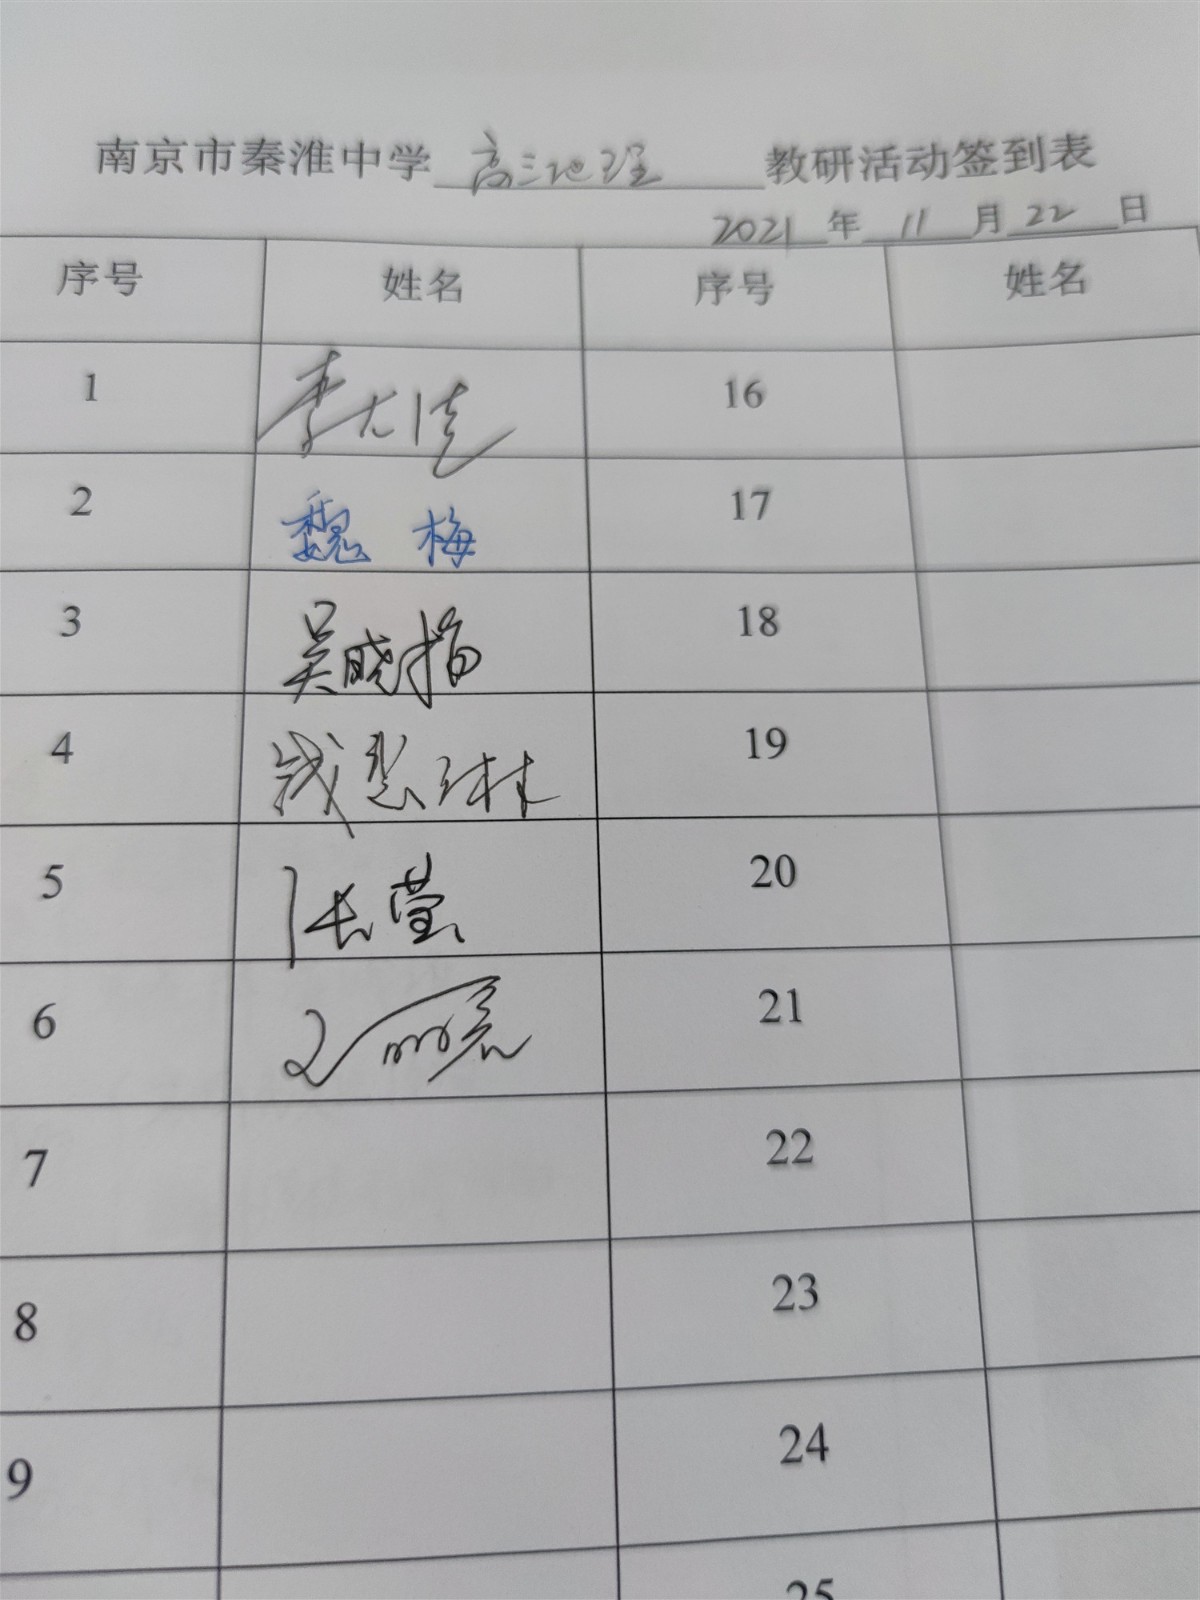 南京市秦淮中学 高三地理 教研活动签到表
2021 年 11 月 22 日
序号 姓名 序号 姓名
1 16
2 魏 梅 17
3 吴晓扬 18
4 钱慧琳 19
5 张莹 20
6 21
7 22
8 23
9 24
25